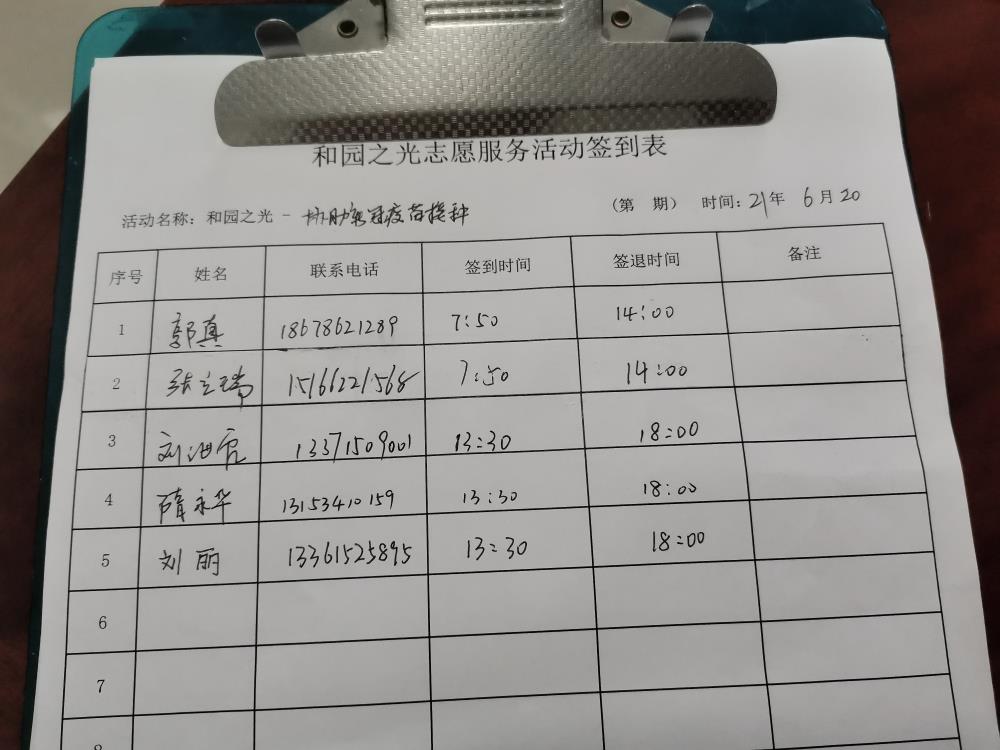 和园之光志愿服务活动签到表
活动名称：和园之光 - 协助新冠疫苗接种 （第 期） 时间：21年 6月20
序号 姓名 联系电话 签到时间 签退时间 备注
1 郭真 18678621289 7:50 14:00
2 张立瑞 15166221568 7:50 14:00
3 刘 13371509001 13:30 18:00
4 隋永华 13153410159 13:30 18:00
5 刘丽 13361525895 13:30 18:00
6
7
8